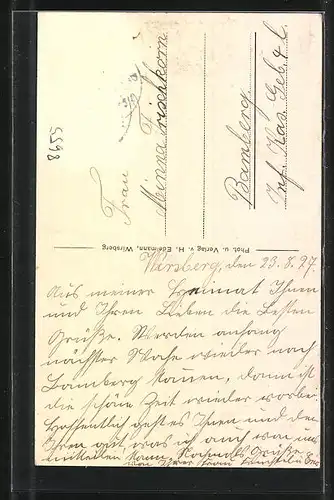 8655
Frau
Minna Frischkorn
Bamberg
Inf. Kas. Geb. 4 l.
Phot. u. Verlag v. H. Edelmann, Wirsberg
Wirsberg, den 23.8.27.
Aus meiner Heimat Ihnen
und Ihren Lieben die besten
Grüße. Werden anfang
nächster Wohe wieder nach
Bamberg kommen, dann ist
die schöne Zeit wieder vorbei.
Hoffentlich geht es Ihnen und den
Ihren gut was ich auch von uns
mitteilen kann. Nochmals Grüße
von Ihrer Frau